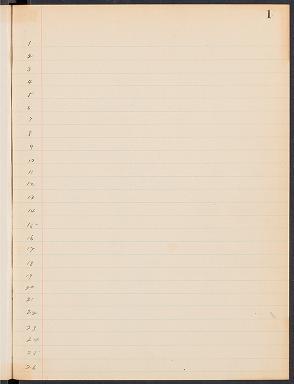 1
1
2
3
4
5
6
7
8
9
10
11
12
13
14
15
16
17
18
19
20
21
22
23
24
25
26